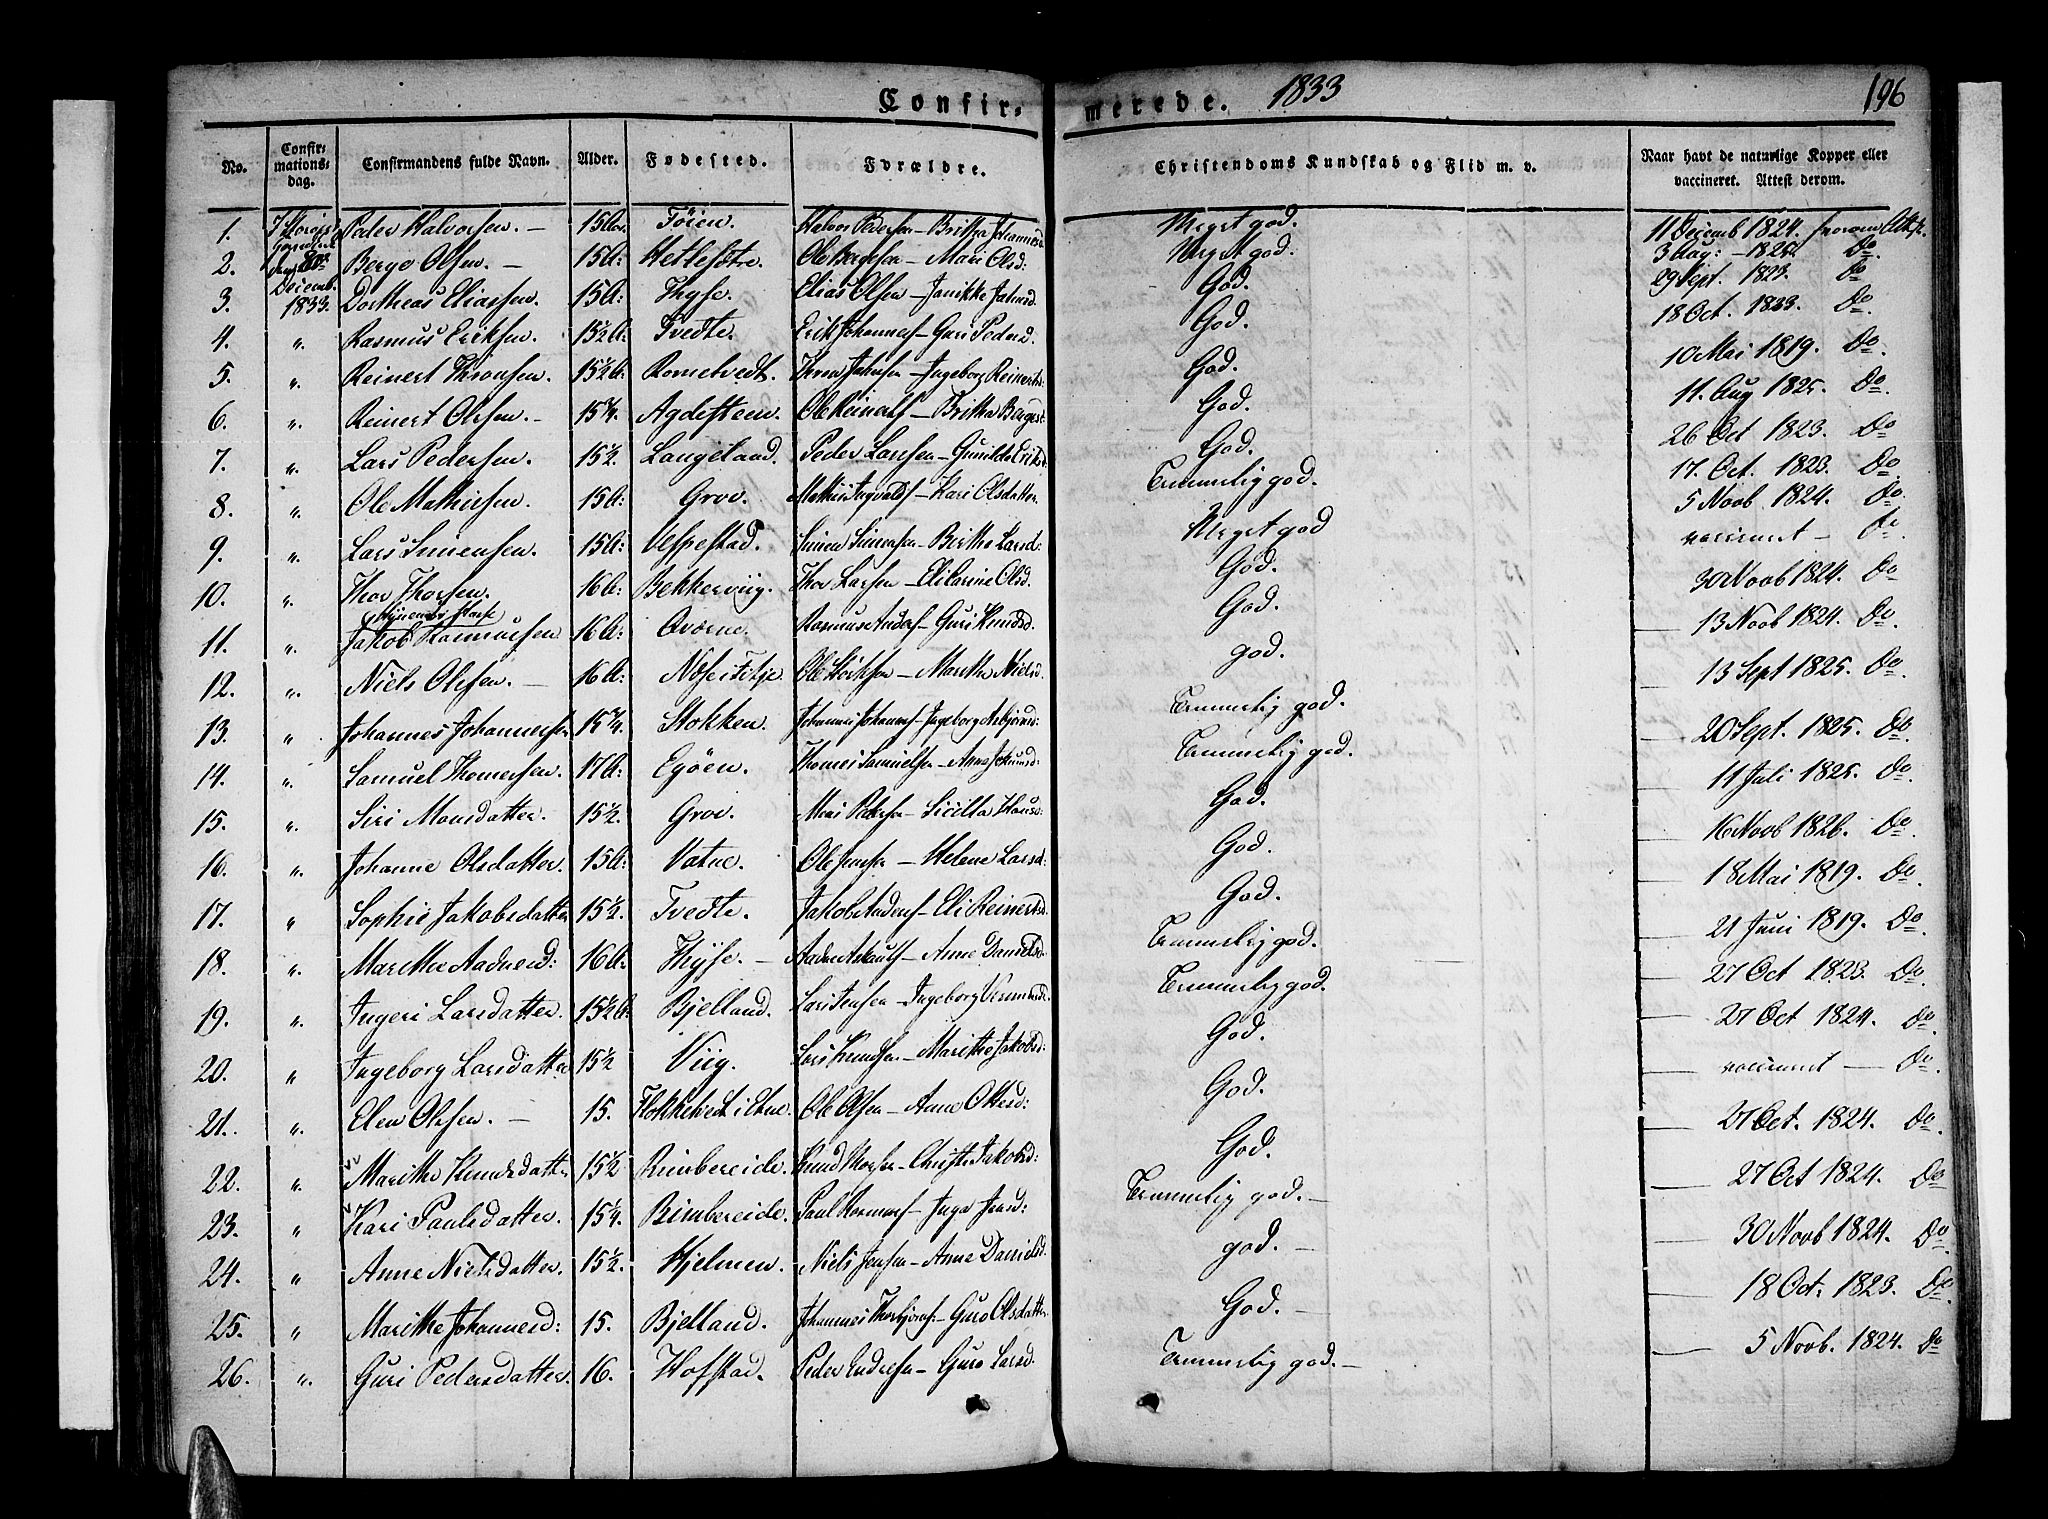 Confirmerede. 1833 196
No. Confirmations-dag. Confirmandens fulde Navn. Alder. Fødested. Forældre. Christendoms Kundskab og Flid m. v. Naar havt de naturlige Kopper eller vaccineret. Attest derom.
1. Peder Halvorsen. — 15 Føien. Halvor Pedersen — Britha Johannesd Meget god. 11 Decemb 1824.
2. den Berge Olsen. — 15 A: Hetlesøtre. Ole Bergesen — Mari Olsd: Meget god. 3 Aug: — 1825. Do
3. Decemb. 1833. Dortheas Eliassen. 15 A: Thyse. Elias Olsen — Janikke God. 29 Sept. 1823. Do
4. " Rasmus Eriksen. 15½ A: Tvedte. Erik Johannes — Guri Pedersd. God. 18 Oct. 1833. Do
5. " Reinert Thronsen. 15½ A: Rometvedt. — Ingeborg Reinertsd: God. 10 Mai 1819. Do
6. " Reinert Olsen. — 15¾. Agdesteen. Ole Reinerts — Britha Bergesd God. 11. Aug 1825. Do
7. " Lars Pedersen. 15½. Langeland. Peder Larsen — Gunilda Eriksd God. 26 Oct 1823. Do
8. " Ole Mathiesen. 15 A: Grov. Mathis Ingvalds — Kari Olsdatter Temmelig god. 17. Oct. 1823. Do
9. " Lars Simensen. 15 A: Vespestad. Simen Simensen — Birthe Larsd: Meget god 5 Novb 1824. Do
10. " Thor Thorsen. 16 A: Bekkerviig. Thor Larsen — Olsd. God. vaccineret — Do
11. " Jakob Rasmussen 16 A: Rasmus — Guri Knudsd. God. 30 Novb 1824. Do
12. " Niels Olsen. — 16 A: Ole — Marithe Nielsd god. 13 Novb 1824. Do
13. " Johannes Johannessen 15¾. Stokken. Johannes Johanness — Ingeborg Asbjørnsd: Temmelig god. 13 Sept 1825. Do
14. " Samuel Thomessen. 17 A: Egøen. Thomes Samuelsen — Temmelig god. 20 Sept. 1825. Do
15. " Siri Monsdatter. 15½. Grov. Mons Pedersen — Sicilla God. 11 Juli 1825. Do
16. " Johanne Olsdatter. 15 A: Vatne. Ole Jensen — Helene Larsd: God. 16 Novb 1826. Do
17. " Sophie Jakobsdatter 15½. Tvedte. — Eli Reinertsd. God. 18 Mai 1819. Do
18. " Marithe Aadnesd: 16 A: Thyse. — — Anne Danielsd. Temmelig god. 21 Juni 1819. Do
19. " Ingeri Larsdatter 15½ A: Bjelland. Lars Jensen — Ingeborg Temmelig god. 27 Oct 1823. Do
20. " Ingeborg Larsdatter 15½ Viig. Lars Knudsen — Marithe Jakobsd: God. 27 Oct 1824. Do
21. " Elen Olsen. — 15. Flokketvedt i Etne. Ole Olsen — Anne Ottersd: God. vaccineret — Do
22. " Marithe Knudsdatter 15½ Rimbereide. Knud Thorsen — Christi Jakobsd: God. 27 Oct. 1824. Do
23. " Kari Paulsdatter 15¼. Rimbereide. Paul — Inga Jensd: Temmelig god. — 27 Oct 1824. Do
24. " Anne Nielsdatter. 15½. Hjelmen. Niels Jensen — Anne Danielsd. god. — 30 Novb 1824. Do
25. " Marithe Johannesd: 15. Bjelland. Johannes Thorbjørns: — Guro Olsdatter. God. — 18 Oct: 1823. Do
26. " Guri Pedersdatter. 16. Hofstad. Peder Endresen — Guro Larsd. Temmelig god. — 5 Novb. 1824. Do